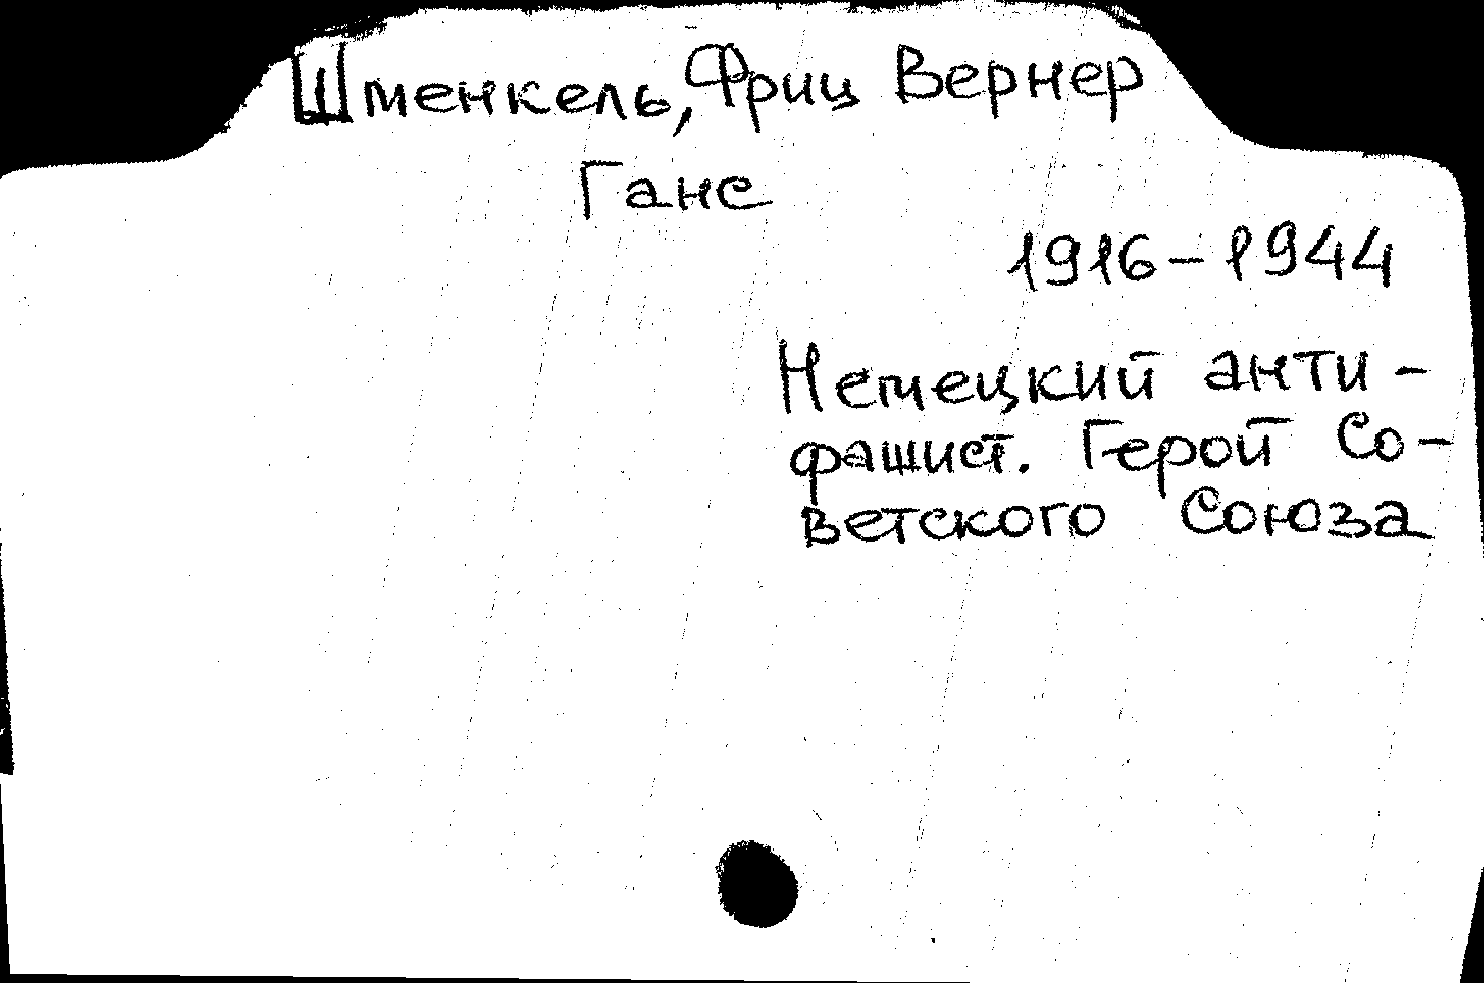 Шменкель, Фриц Вернер
Ганс
1916-1944
Немецкий анти-
фашист. Герой Со-
ветского Союза